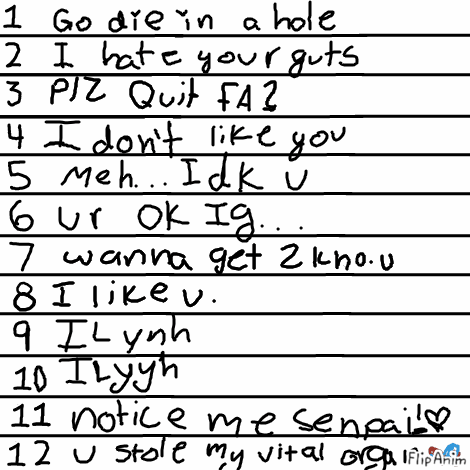 1 Go die in a hole
2 I hate your guts
3 Plz Quit FA!
4 I don't like you
5 Meh... Idk u
6 ur OK Ig...
7 wanna get 2 kno.u
8 I like u.
9 ILynh
10 ILyyh
11 notice me senpai!♡
12 u stole my vital
FlipAnim